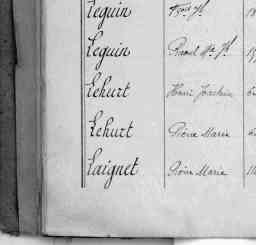 Leguin
Leguin Raoul Me Jh
Lehurt Henri Joachim
Lehurt Pierre Marie
Laignet Pierre Marie